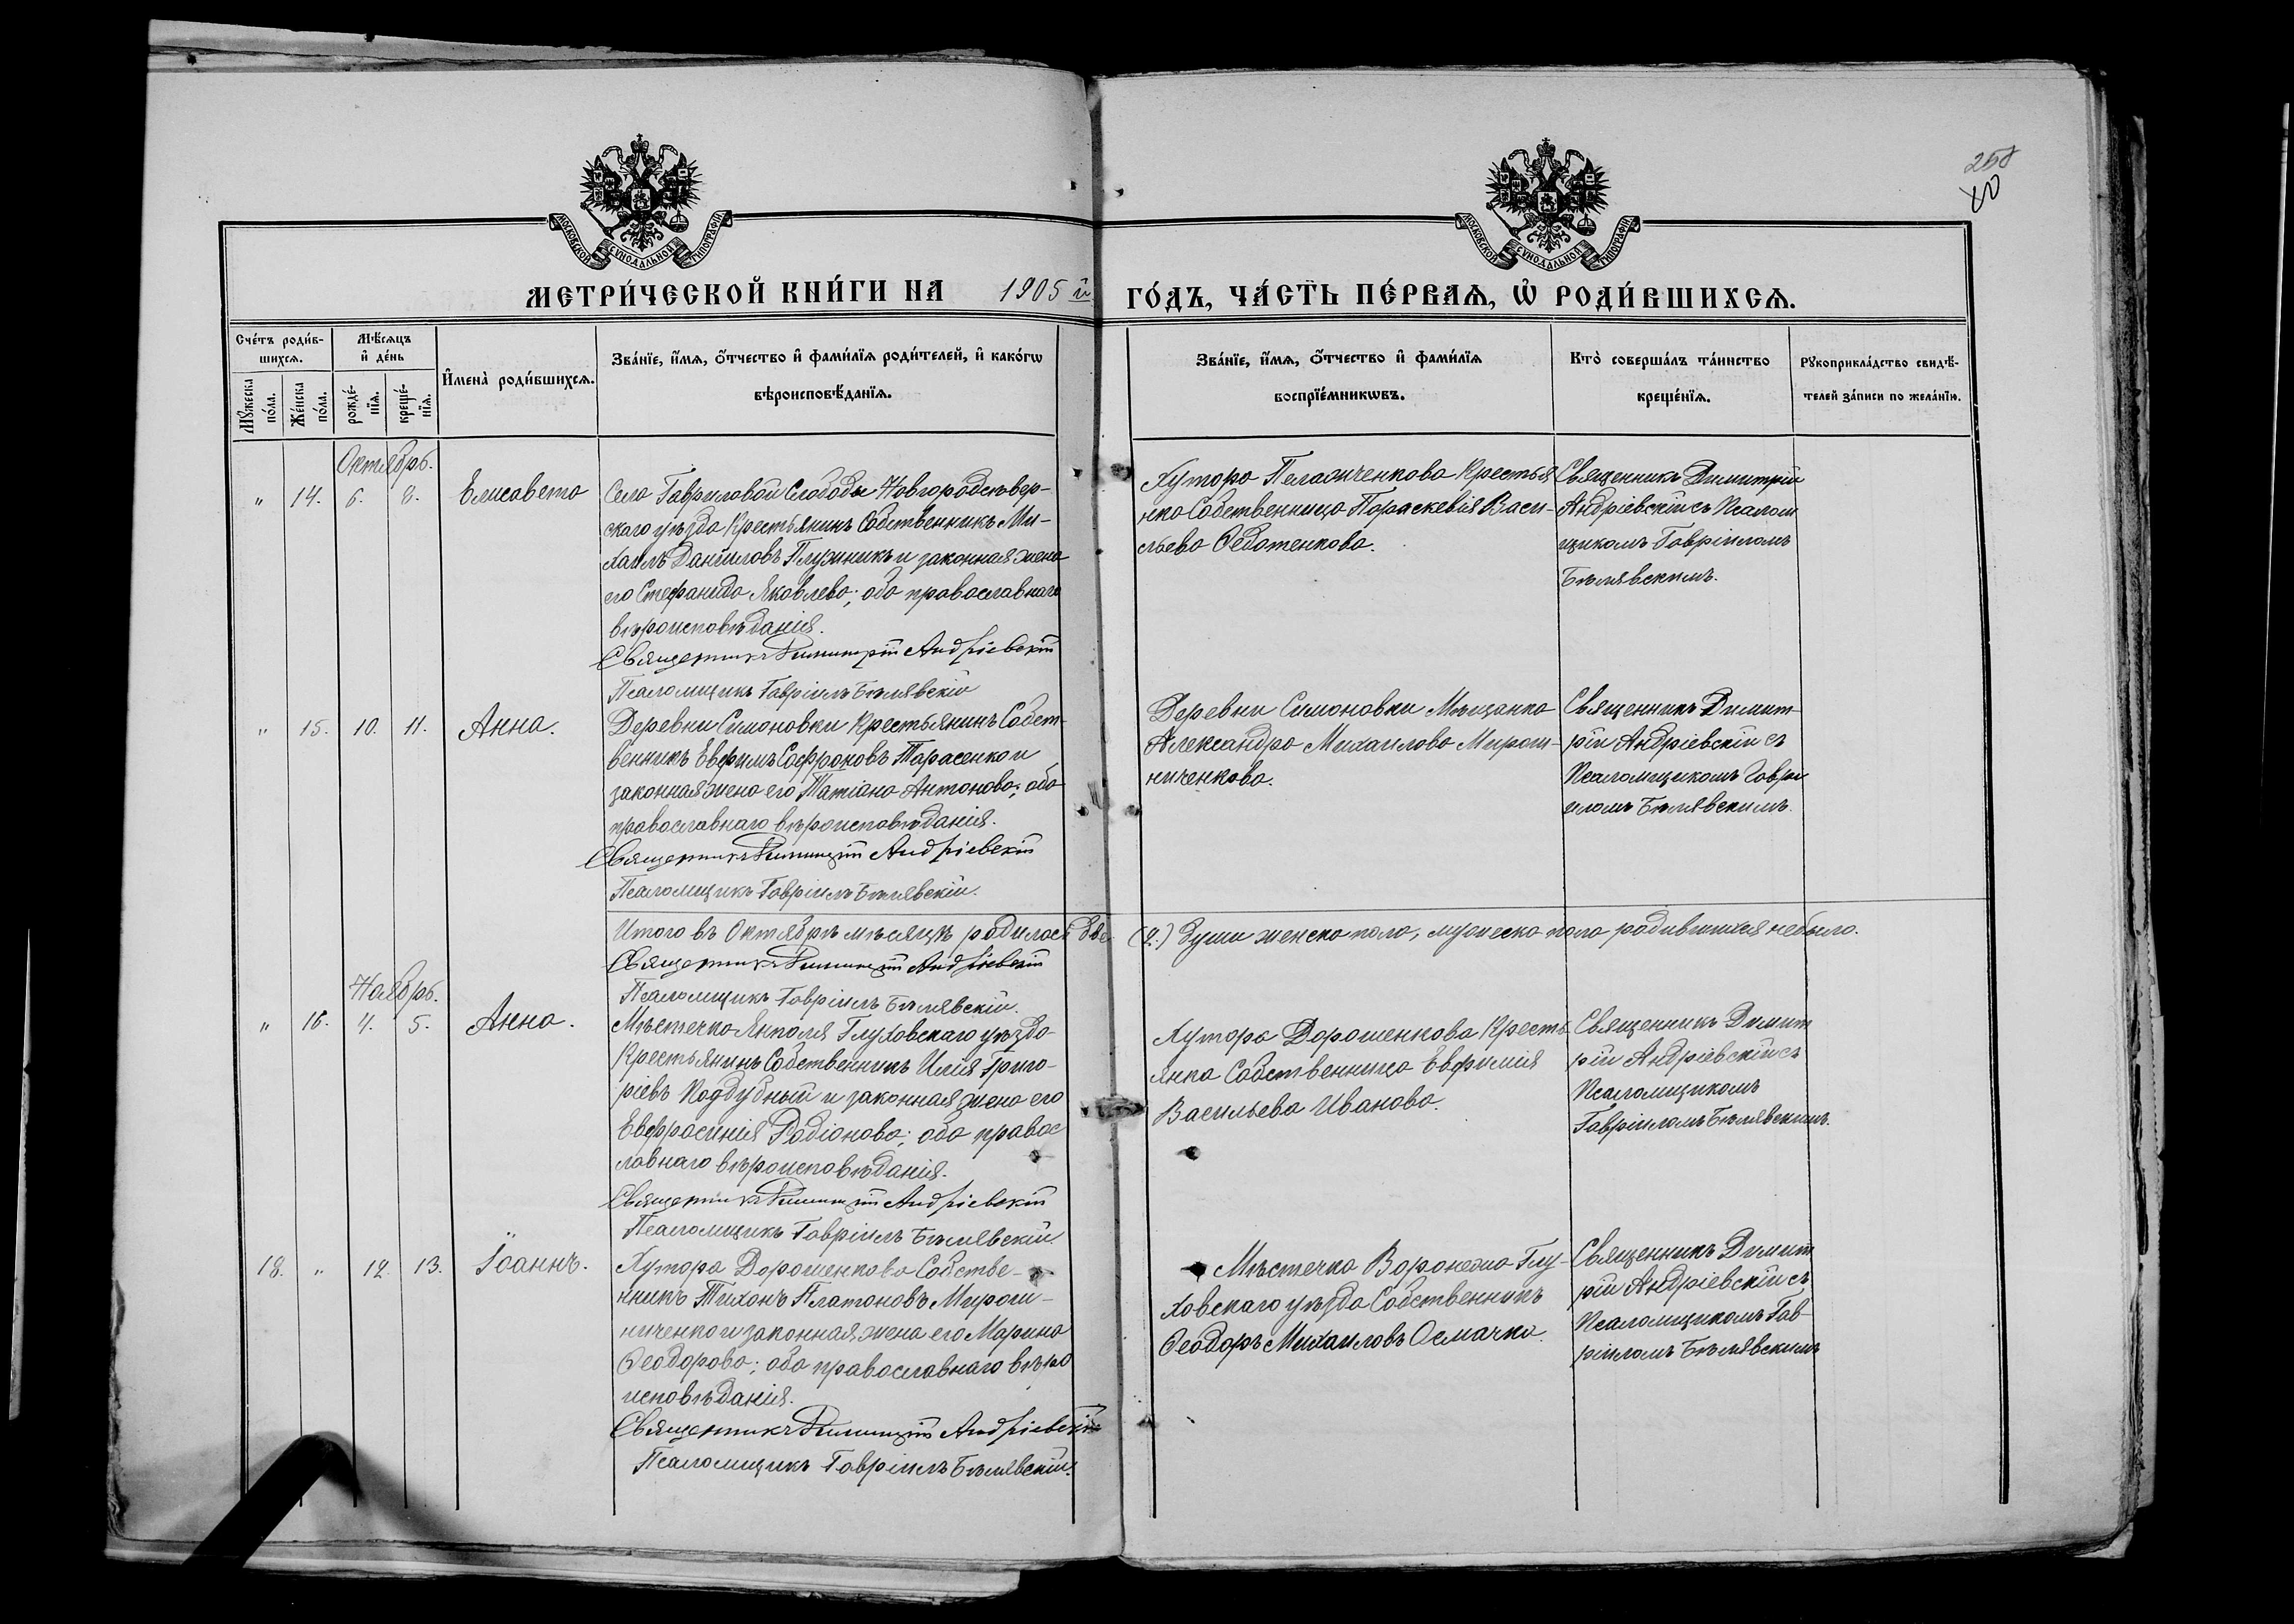 258
МОСКОВСКОЙ СѴНОДАЛЬНОЙ ТИПОГРАФІИ
МОСКОВСКОЙ СѴНОДАЛЬНОЙ ТИПОГРАФІИ
МЕТРИ́ЧЕСКОЙ КНИ́ГИ НА 1905 й ГО́ДЪ, ЧА́СТЬ ПЕ́РВАѦ, Ѡ҆ РОДИ́ВШИХСѦ.
Сче́тъ роди́в-
шихсѧ.
Мꙋ́жеска
по́ла.
Же́нска
по́ла.
Мѣ́сѧцъ
и҆ де́нь
рожде́-
нїѧ.
креще́-
нїѧ.
И҆мена̀ роди́вшихсѧ.
Зва́нїе, и҆́мѧ, ѻ҆́тчество и҆ фами́лїѧ роди́телей, и҆ како́гѡ
вѣроисповѣ́данїѧ.
Зва́нїе, и҆́мѧ, ѻ҆́тчество и҆ фами́лїѧ
воспрїе́мникѡвъ.
Кто̀ соверша́лъ та́инство
креще́нїѧ.
Рꙋкоприкла́дство свидѣ́-
телей за́писи по жела́нїю.
Октябрь.
" 14. 6. 8. Елисавета
Села Гавриловой Слободы Новгородсѣвер-
скаго уѣзда Крестьянинъ Собственникъ Ми-
хаилъ Даніиловъ Плужникъ и законная жена
его Стефанида Яковлева; оба православнаго
вѣроисповѣданія.
Священникъ Димитрій Андріевскій
Псаломщикъ Гавріилъ Бѣлявскій
Хутора Пелахченкова Крестья
нка Собственница Параскевія Васи-
льева Федотенкова.
Священникъ Димитрій
Андріевскій съ Псалом
щикомъ Гавріиломъ
Бѣлявскимъ.
" 15. 10. 11. Анна.
Деревни Симоновки Крестьянинъ Собст-
венникъ Евфимъ Софроновъ Тарасенко и
законная жена его Татіана Антонова; оба
православнаго вѣроисповѣданія.
Священникъ Димитрій Андріевскій
Псаломщикъ Гавріилъ Бѣлявскій.
Деревни Симоновки Мѣщанка
Александра Михаилова Мирош-
ниченкова.
Священникъ Димит-
рій Андріевскій съ
Псаломщикомъ Гаври
иломъ Бѣлявскимъ.
Итого въ Октябрѣ мѣсяцѣ родилось две (2.) души женска пола, мужеска пола родившихся небыло.
Священникъ Димитрій Андріевскій
Псаломщикъ Гавріилъ Бѣлявскій.
Ноябрь.
" 16. 4. 5. Анна.
Мѣстечка Янполя Глуховскаго уѣзда
Крестьянинъ Собственникъ Илія Григо-
ріевъ Поддубный и законная жена его
Евфросинія Родіонова; оба правос
лавнаго вѣроисповѣданія.
Священникъ Димитрій Андріевскій
Псаломщикъ Гавріилъ Бѣлявскій.
Хутора Дорошенкова Кресть
янка Собственница Евфимія
Васильева Иванова.
Священникъ Димит
рій Андріевскій съ
Псаломщикомъ
Гавріиломъ Бѣлявскимъ.
18. " 12. 13. Іоаннъ.
Хутора Дорошенкова Собстве-
нникъ Тихонъ Платоновъ Мирош-
ниченко и законная жена его Марина
Ѳеодорова; оба православнаго вѣро
исповѣданія.
Священникъ Димитрій Андріевскій
Псаломщикъ Гавріилъ Бѣлявскій.
Мѣстечка Воронежа Глу-
ховскаго уѣзда Собственникъ
Ѳеодоръ Михаиловъ Осмачко.
Священникъ Димит
рій Андріевскій съ
Псаломщикомъ Гав-
ріиломъ Бѣлявскимъ